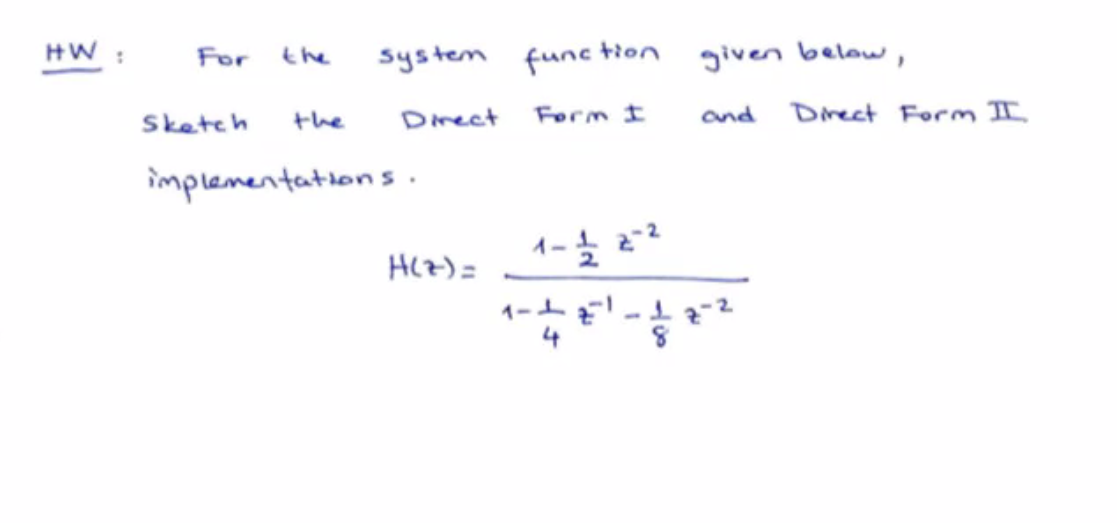 HW : For the system function given below,
Sketch the Direct Form I and Direct Form II
implementations.
H(z) = (1 - 1/2 z^-2) / (1 - 1/4 z^-1 - 1/8 z^-2)